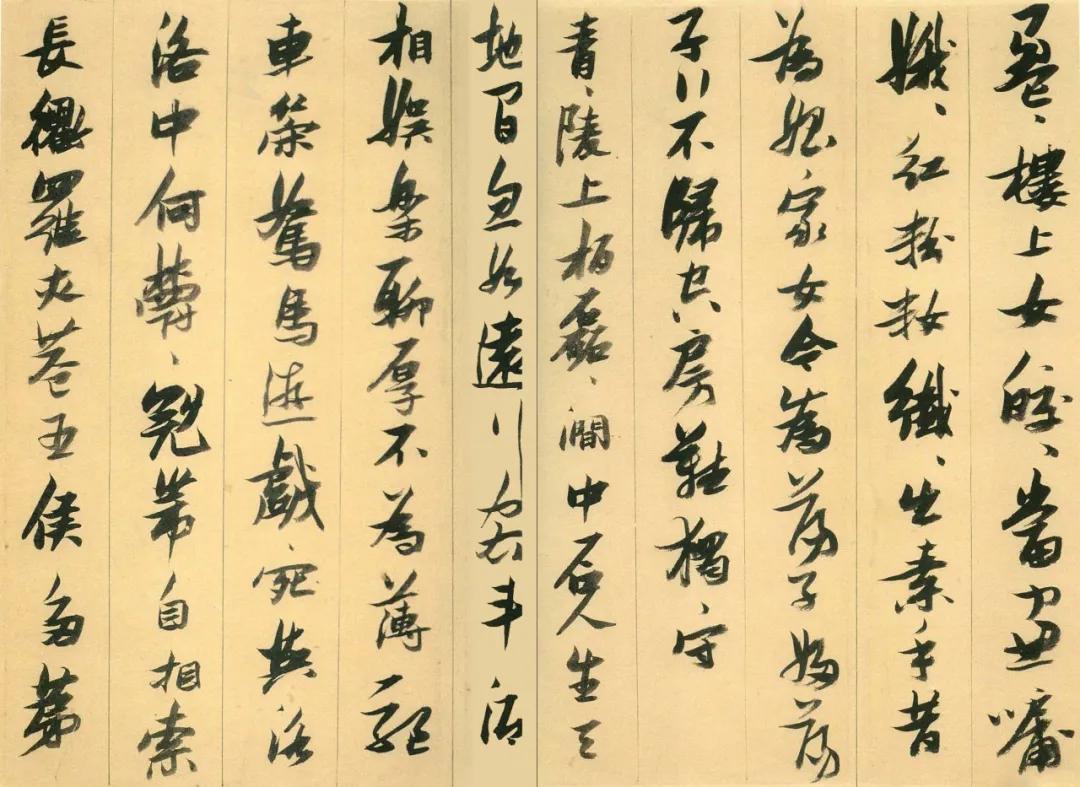 盈、樓上女皎、當窗牖
娥、紅粉妝纖、出素手昔
為娼家女今為蕩子婦蕩
子行不歸空房難獨守
青、陵上柏磊、澗中石人生天
地間忽如遠行客斗酒
相娛樂聊厚不為薄驅
車策駑馬遊戲宛與洛
洛中何鬱、冠帶自相索
長衢羅夾巷王侯多第